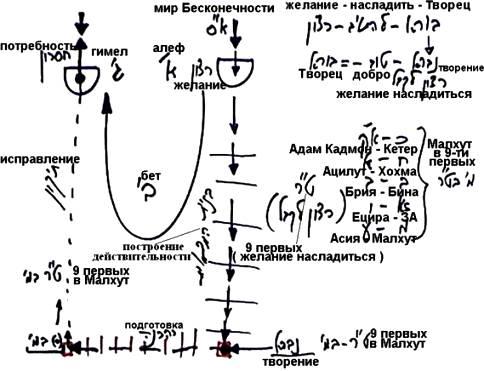 мир Бесконечности
א"ס
желание - насладить - Творец
רצון - להטיב - בורא
потребность
חסרון
гимел
ג'
алеф
א'
רצון
желание
בורא - טוב - נברא
Творец добро творение
רצון לקבל
желание насладиться
исправление
תיקון
бет
ב'
Адам Кадмон - Кетер
Ацилут - Хохма
Брия - Бина
Ецира - ЗА
Асия - Малхут
Малхут
в 9-ти
первых
מ' בט"ר
ט"ר
(רצון לקבל)
построение
действительности
9 первых
( желание насладиться )
ט"ר במ'
9 первых
в Малхут
подготовка
הכנה
נברא
творение
ט"ר - במ'
9 первых
в Малхут